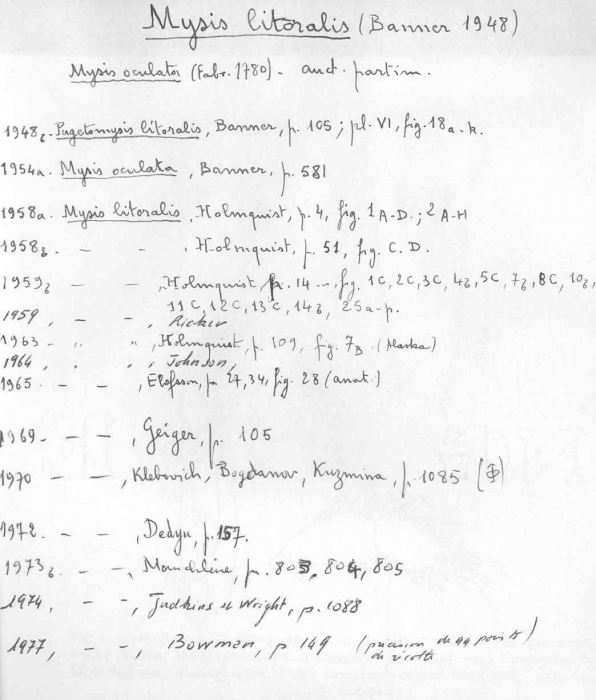 Mysis litoralis (Banner 1948)
Mysis oculator (Fabr. 1780) - auct. partim.
1948b - Pugetomysis litoralis, Banner, p. 105 ; pl. VI, fig. 18 a - k.
1954a. Mysis oculata, Banner, p. 581
1958a. Mysis litoralis, Holmquist, p. 4, fig. 1 A-D. ; 2 A-H
1958b. - - , Holmquist, p. 51, fig. C. D.
1959b - - , Holmquist, p. 14 ..., fig. 1C, 2C, 3C, 4b, 5C, 7b, 8C, 10b,
11C, 12C, 13C, 14b, 25a-p.
1959, - - , Ricker
1963 - " " , Holmquist, p. 109, fig. 7B (Alaska)
1964, , Johnson,
1965 - - - , Elofsson, p. 27, 34, fig. 28 (anat.)
1969. - - , Geiger, p. 105
1970 - - , Klebovich, Bogdanov, Kuzmina, p. 1085 [Φ)
1972. - - , Dedyu, p. 157.
1973b. - - , Mauchline, p. 803, 804, 805
1974, - - , Judkins et Wright, p. 1088
1977, - - , Bowman, p 149 (précision de 99 points)
de récolte